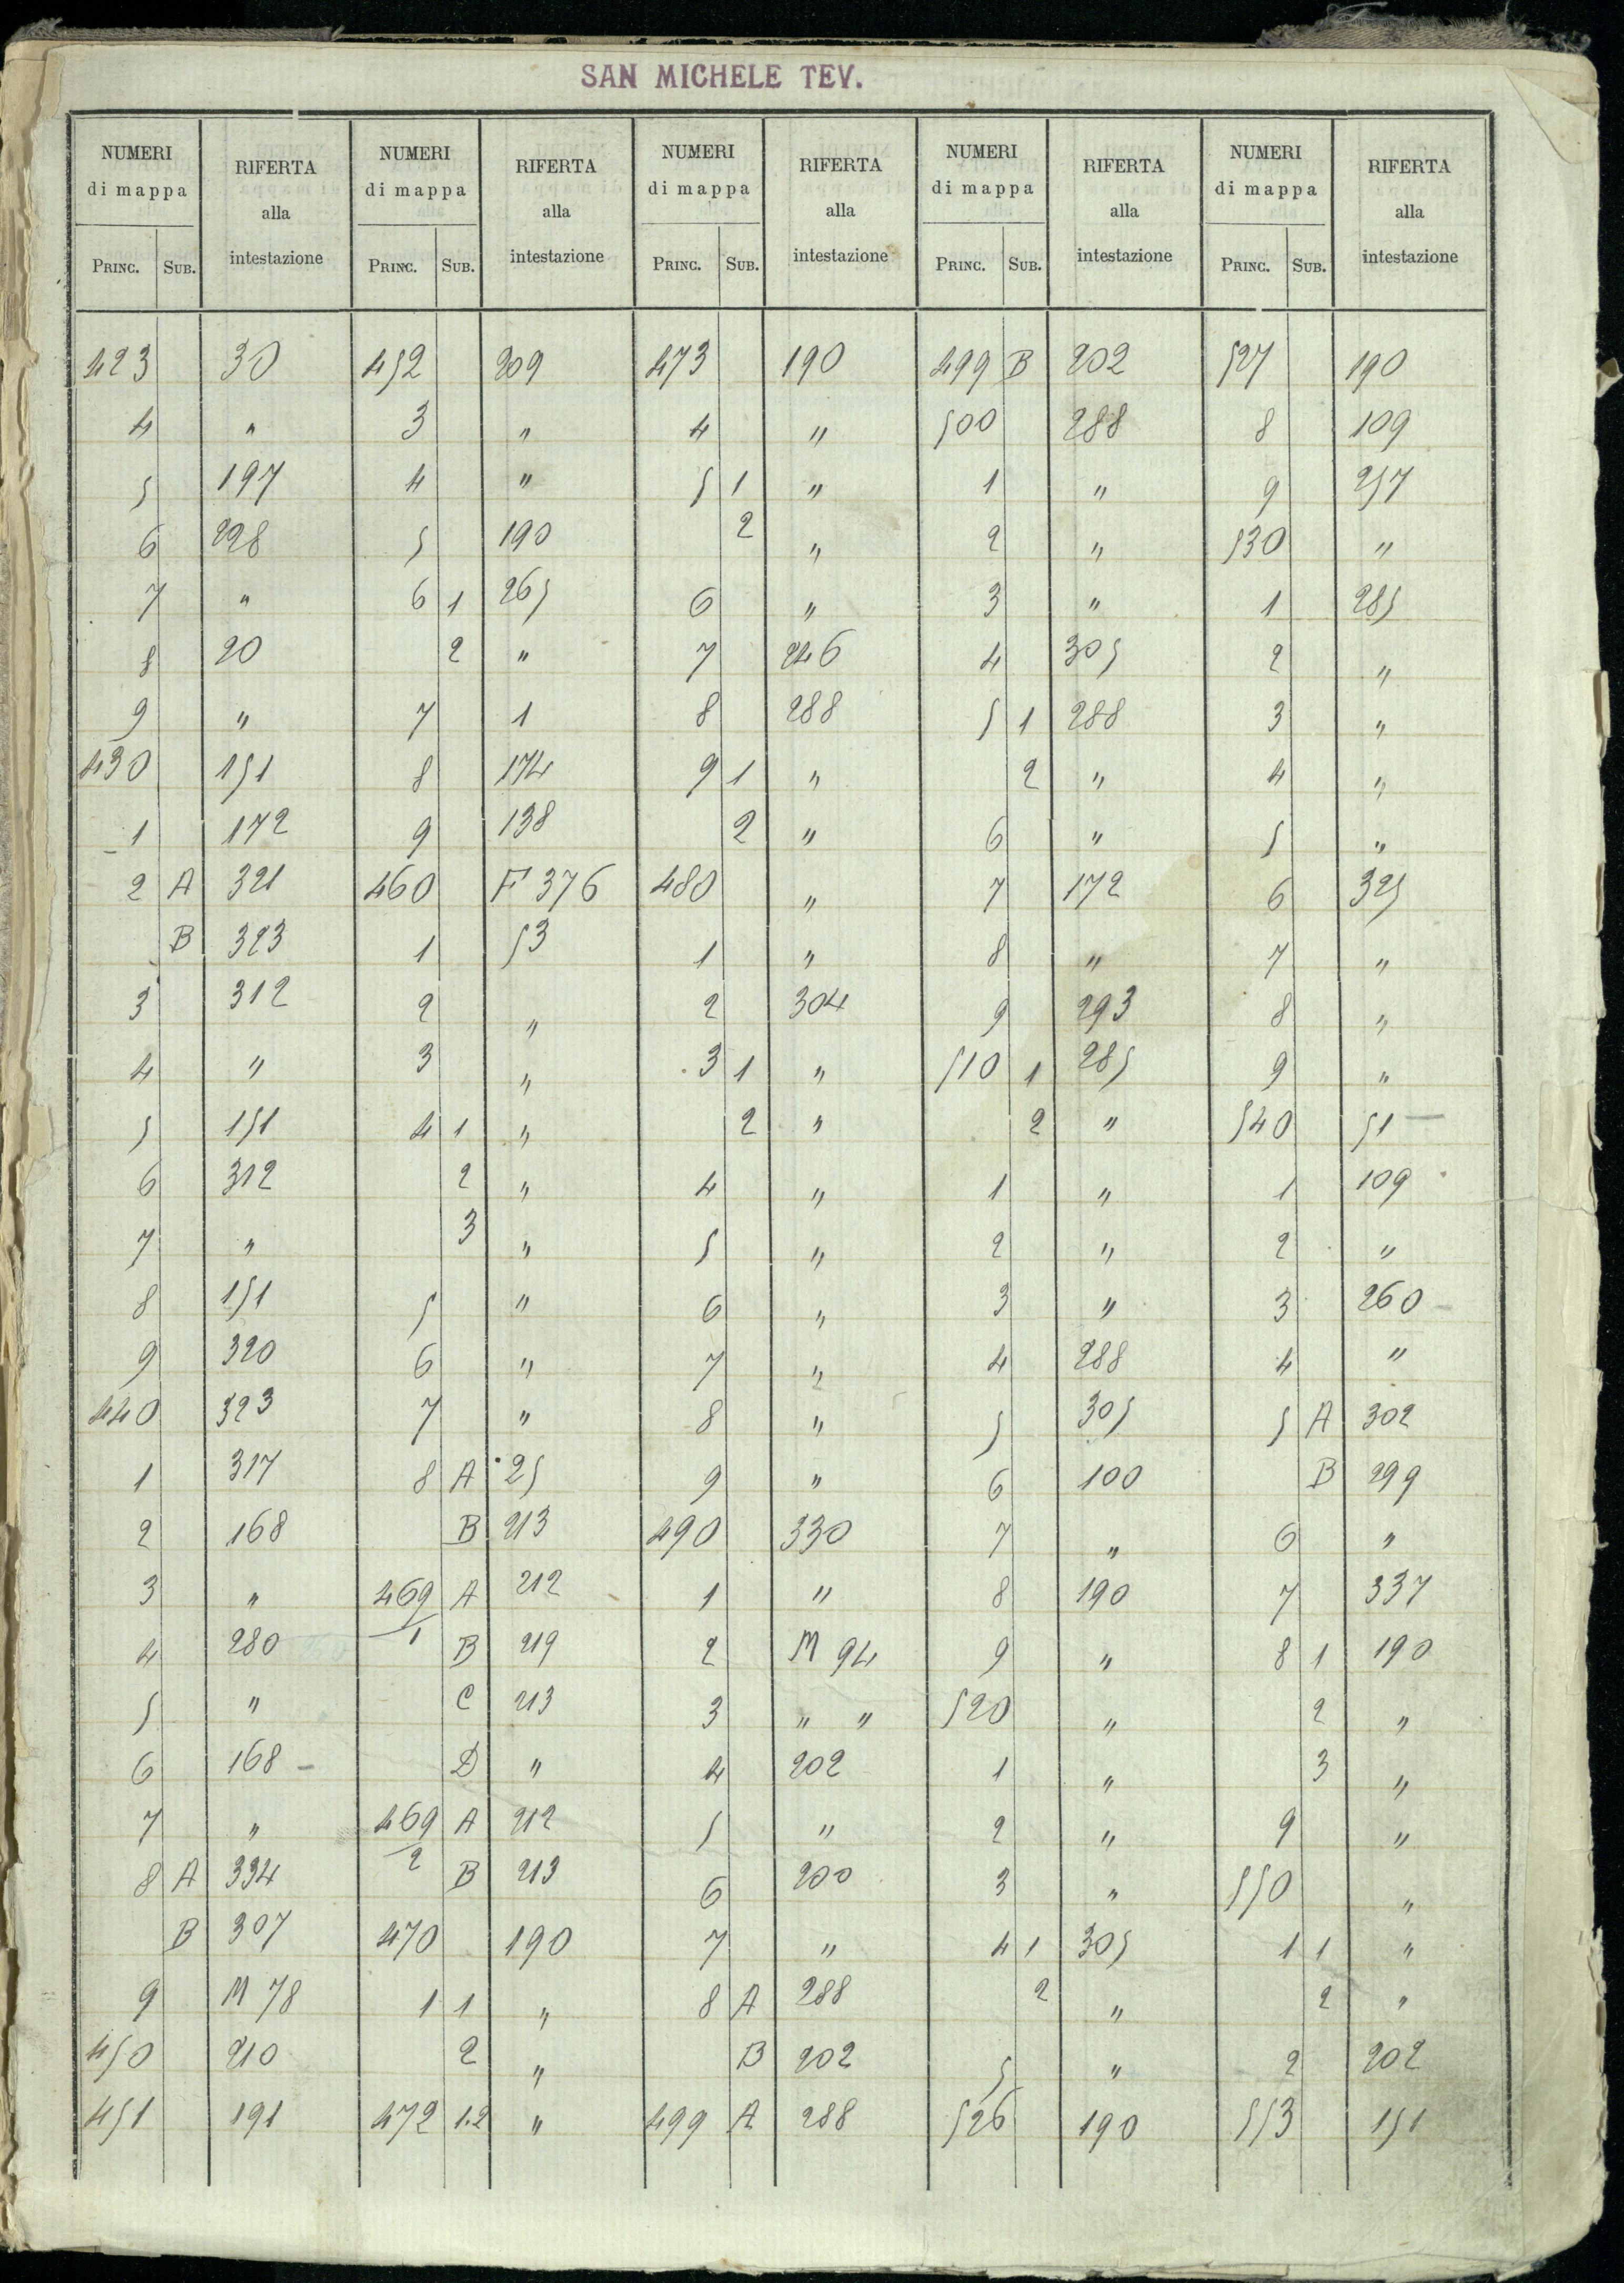 SAN MICHELE TEV.
NUMERI di mappa RIFERTA alla intestazione NUMERI di mappa RIFERTA alla intestazione NUMERI di mappa RIFERTA alla intestazione NUMERI di mappa RIFERTA alla intestazione NUMERI di mappa RIFERTA alla intestazione
PRINC. SUB. PRINC. SUB. PRINC. SUB. PRINC. SUB. PRINC. SUB.
423 30 452 209 473 190 499 B 202 527 190
4 " 3 " 4 " 500 288 8 109
5 197 4 " 5 1 " 1 " 9 257
6 228 5 190 2 " 2 " 530 "
7 " 6 1 265 6 " 3 " 1 285
8 20 2 " 7 246 4 305 2 "
9 " 7 1 8 288 5 1 288 3 "
430 151 8 174 9 1 " 2 " 4 "
1 172 9 138 2 " 6 " 5 "
2 A 321 460 F 376 480 " 7 172 6 325
B 323 1 53 1 " 8 " 7 "
3 312 2 " 2 304 9 293 8 "
4 " 3 " 3 1 " 510 1 285 9 "
5 151 4 1 " 2 " 2 " 540 51
6 312 2 " 4 " 1 " 1 109
7 " 3 " 5 " 2 " 2 "
8 151 5 " 6 " 3 " 3 260
9 320 6 " 7 " 4 288 4 "
440 323 7 " 8 " 5 305 5 A 302
1 317 8 A 25 9 " 6 100 B 299
2 168 B 213 490 330 7 " 6 "
3 " 469/1 A 212 1 " 8 190 7 337
4 280 B 219 2 M 94 9 " 8 1 190
5 " C 213 3 " " 520 " 2 "
6 168 D " 4 202 1 " 3 "
7 " 469/2 A 212 5 " 2 " 9 "
8 A 334 B 213 6 200 3 " 550 "
B 307 470 190 7 " 4 1 305 1 1 "
9 M 78 1 1 " 8 A 288 2 " 2 "
450 210 2 " B 202 5 " 2 202
451 191 472 1.2 " 499 A 288 526 190 553 151